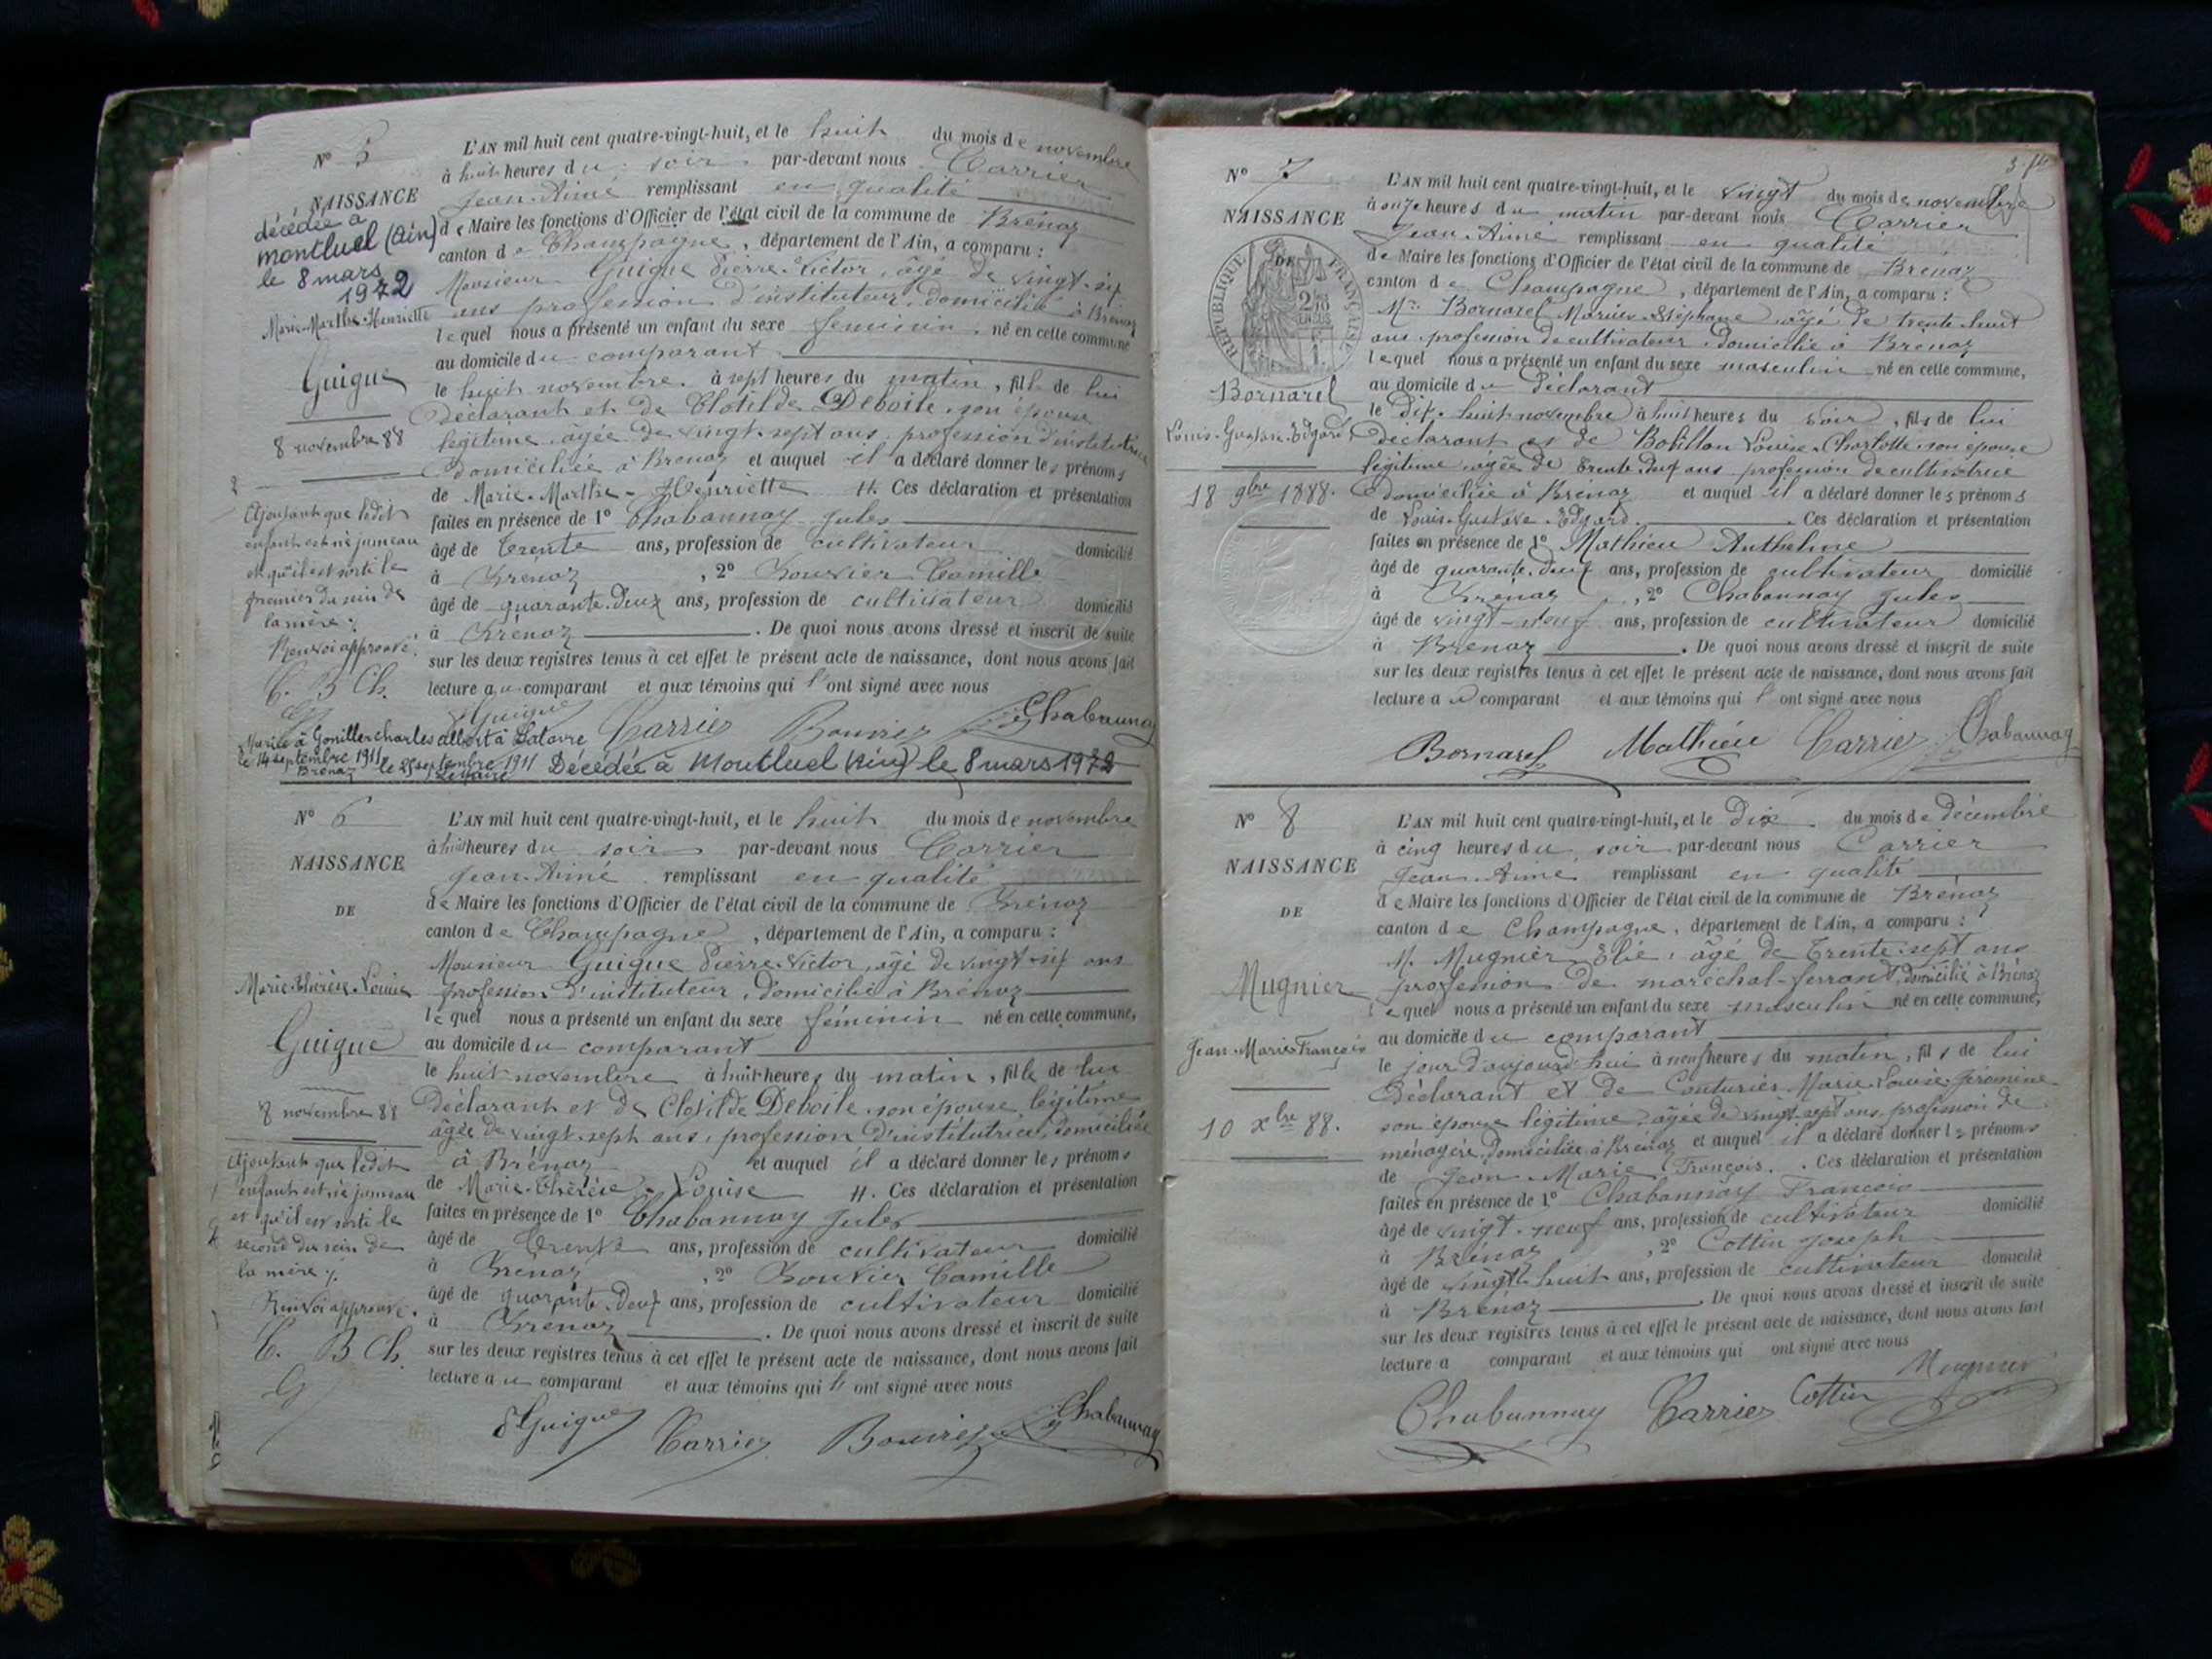 N° 5
NAISSANCE
décédée à
montluel (Ain)
le 8 mars
1972
Marie-Marthe-Henriette
Guigue
8 novembre 88
Ajoutant que ledit
enfant est né jumeau
et qu'il est sorti le
premier du sein de
la mère ./.
Renvoi approuvé.
C. B Ch.
G
L'AN mil huit cent quatre-vingt-huit, et le huit du mois de novembre
à huit heures du soir par-devant nous Carrier
Jean-Aimé remplissant en qualité
de Maire les fonctions d'Officier de l'état civil de la commune de Brénaz
canton de Champagne, département de l'Ain, a comparu :
Monsieur Guigue Pierre-Victor, âgé de vingt-six
ans profession d'instituteur, domicilié à Brénaz
lequel nous a présenté un enfant du sexe féminin né en cette commune
au domicile du comparant
le huit novembre à sept heures du matin, fille de lui
Déclarant et de Clotilde Deboile son épouse
légitime âgée de vingt-sept ans, profession d'institutrice
domiciliée à Brénaz et auquel il a déclaré donner les prénoms
de Marie-Marthe-Henriette #. Ces déclaration et présentation
faites en présence de 1° Chabannay Jules
âgé de trente ans, profession de cultivateur domicilié
à Brénaz, 2° Bouvier Camille
âgé de quarante-deux ans, profession de cultivateur domicilié
à Brénaz. De quoi nous avons dressé et inscrit de suite
sur les deux registres tenus à cet effet le présent acte de naissance, dont nous avons fait
lecture au comparant et aux témoins qui l'ont signé avec nous
Guigue Carrier Bouvier Chabannay
Mariée à Goniller charles albert à Satavre
le 14 septembre 1911
Brénaz le 25 septembre 1911 Décédée à Montluel (Ain) le 8 mars 1972
Le Maire
N° 6
NAISSANCE
DE
Marie-Thérèse-Louise
Guigue
8 novembre 88
Ajoutant que ledit
enfant est né jumeau
et qu'il est sorti le
second du sein de
la mère ./.
Renvoi approuvé.
C. B Ch.
G
L'AN mil huit cent quatre-vingt-huit, et le huit du mois de novembre
à huit heures du soir par-devant nous Carrier
Jean-Aimé remplissant en qualité
de Maire les fonctions d'Officier de l'état civil de la commune de Brénaz
canton de Champagne, département de l'Ain, a comparu :
Monsieur Guigue Pierre-Victor, âgé de vingt-six ans
profession d'instituteur, domicilié à Brénaz
lequel nous a présenté un enfant du sexe féminin né en cette commune,
au domicile du comparant
le huit novembre à huit heures du matin, fille de lui
Déclarant et de Clotilde Deboile son épouse légitime
âgée de vingt-sept ans, profession d'institutrice, domiciliée
à Brénaz et auquel il a déclaré donner les prénoms
de Marie-Thérèse-Louise #. Ces déclaration et présentation
faites en présence de 1° Chabannay Jules
âgé de trente ans, profession de cultivateur domicilié
à Brénaz, 2° Bouvier Camille
âgé de quarante-deux ans, profession de cultivateur domicilié
à Brénaz. De quoi nous avons dressé et inscrit de suite
sur les deux registres tenus à cet effet le présent acte de naissance, dont nous avons fait
lecture au comparant et aux témoins qui l'ont signé avec nous
Guigue Carrier Bouvier Chabannay
N° 7
NAISSANCE
DE
RÉPUBLIQUE FRANÇAISE
Bornarel
Louis-Gustave-Edgard
18 9bre 1888.
L'AN mil huit cent quatre-vingt-huit, et le vingt du mois de novembre
à onze heures du matin par-devant nous Carrier
Jean-Aimé remplissant en qualité
de Maire les fonctions d'Officier de l'état civil de la commune de Brénaz
canton de Champagne, département de l'Ain, a comparu :
Mr Bornarel Marius-Stéphane âgé de trente-huit
ans profession de cultivateur domicilié à Brénaz
lequel nous a présenté un enfant du sexe masculin né en cette commune,
au domicile du déclarant
le dix-huit novembre à huit heures du soir, fils de lui
déclarant et de Bobillon Louise-Charlotte son épouse
légitime âgée de trente-deux ans profession de cultivatrice
domiciliée à Brénaz et auquel il a déclaré donner les prénoms
de Louis-Gustave-Edgard. Ces déclaration et présentation
faites en présence de 1° Mathieu Anthelme
âgé de quarante-deux ans, profession de cultivateur domicilié
à Brénaz, 2° Chabannay Jules
âgé de vingt-neuf ans, profession de cultivateur domicilié
à Brénaz. De quoi nous avons dressé et inscrit de suite
sur les deux registres tenus à cet effet le présent acte de naissance, dont nous avons fait
lecture au comparant et aux témoins qui l'ont signé avec nous
Bornarel Mathieu Carrier Chabannay
N° 8
NAISSANCE
DE
Mugnier
Jean-Marie-François
10 xbre 88.
L'AN mil huit cent quatre-vingt-huit, et le dix du mois de décembre
à cinq heures du soir par-devant nous Carrier
Jean-Aimé remplissant en qualité
de Maire les fonctions d'Officier de l'état civil de la commune de Brénaz
canton de Champagne, département de l'Ain, a comparu :
M. Mugnier Elie, âgé de trente-sept ans
profession de maréchal-ferrant, domicilié à Brénaz
lequel nous a présenté un enfant du sexe masculin né en cette commune,
au domicile du comparant
le jour d'aujourd'hui à neuf heures du matin, fils de lui
Déclarant et de Couturier Marie-Louise-Jéromine
son épouse légitime, âgée de vingt-sept ans, profession de
ménagère, domiciliée à Brénaz et auquel il a déclaré donner les prénoms
de Jean-Marie François. Ces déclaration et présentation
faites en présence de 1° Chabannay François
âgé de vingt-neuf ans, profession de cultivateur domicilié
à Brénaz, 2° Cottin Joseph
âgé de vingt-huit ans, profession de cultivateur domicilié
à Brénaz. De quoi nous avons dressé et inscrit de suite
sur les deux registres tenus à cet effet le présent acte de naissance, dont nous avons fait
lecture a comparant et aux témoins qui ont signé avec nous
Chabannay Carrier Cottin Mugnier